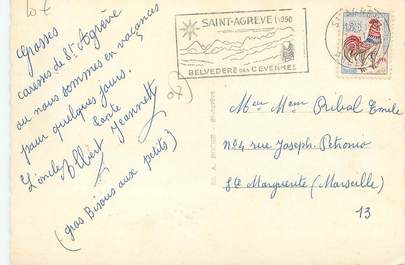 10€
Grosses
caresses de St Agrève
ou nous sommes en vacances
pour quelques jours.
L'oncle Albert Jeannette
(gros Bisous aux petits)
07)
SAINT-AGRÈVE (1050
BELVEDERE DES CEVENNES
Mr Mme Pribal Emile
No4 rue Joseph. Petronio
Ste Marguerite (Marseille)
13